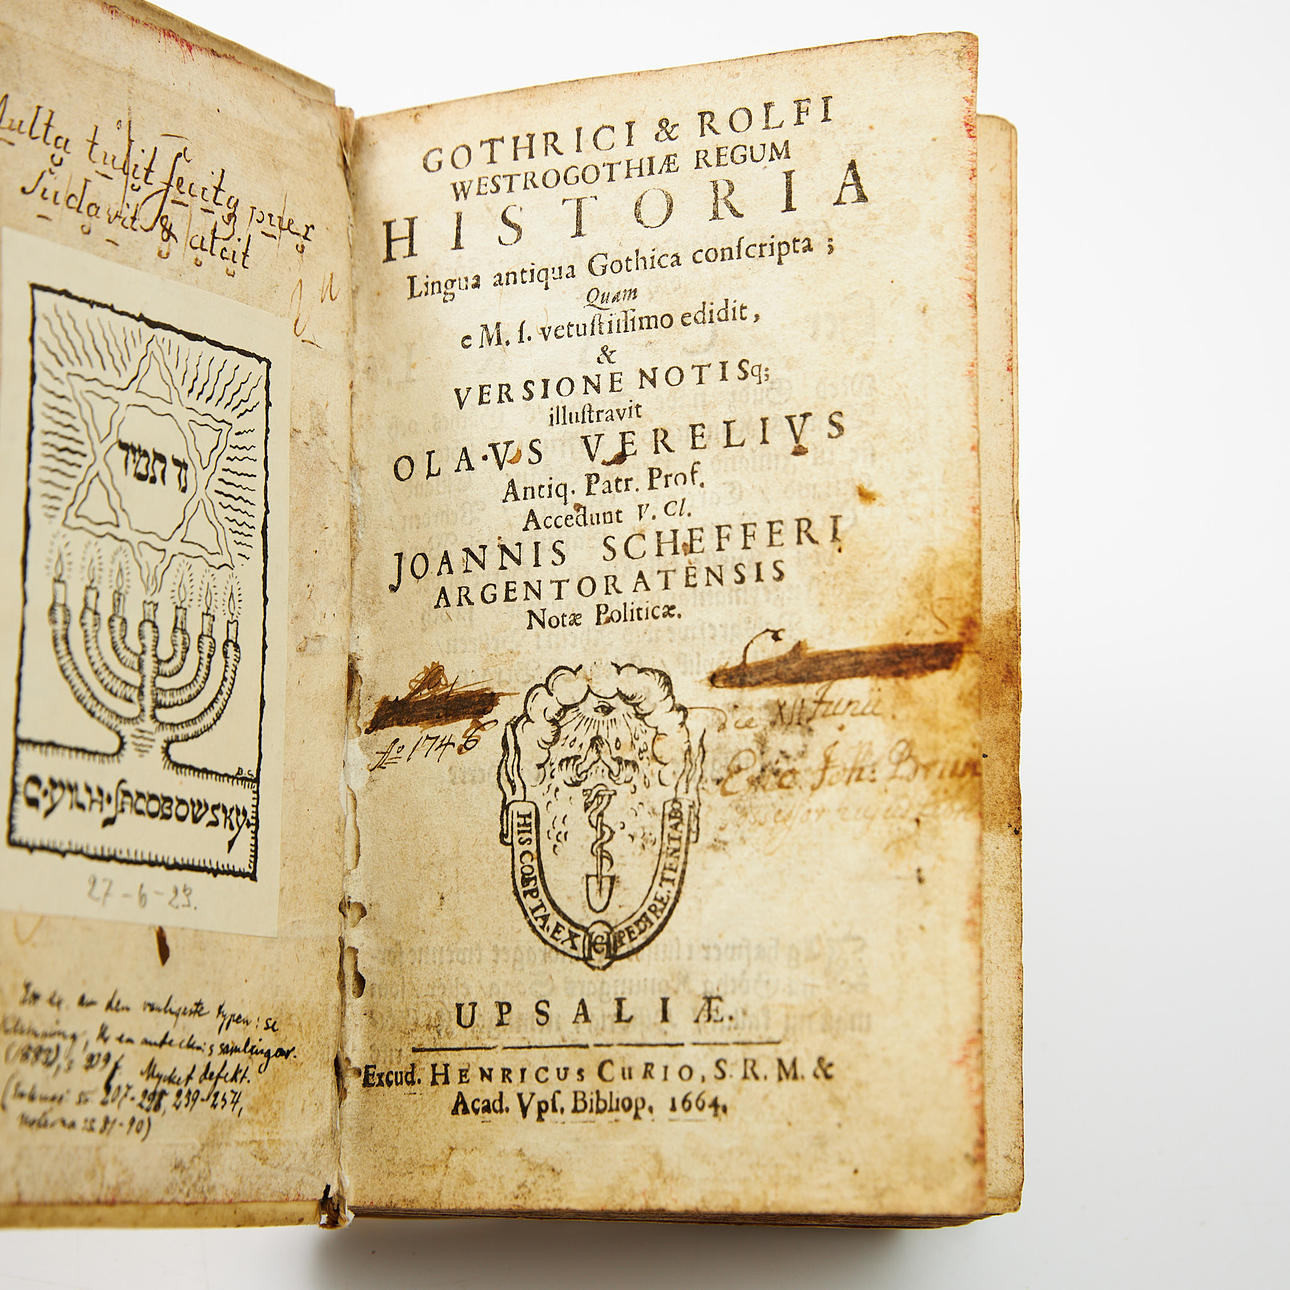 Multa tulit fecitq puer
Sudavit & alsit
נר תמיד
C·VILH·JACOBOWSKY
27-6-23.
Ex. är av den vanligaste typen: se
Klemming, Ur en antecknares samlingar.
(1882), s 929 f. Mycket defekt.
207-238, 239-254,
GOTHRICI & ROLFI
WESTROGOTHIÆ REGUM
HISTORIA
Lingua antiqua Gothica conſcripta ;
Quam
e M. ſ. vetuſtiſſimo edidit,
&
VERSIONE NOTISq;
illuſtravit
OLAVS VERELIVS
Antiq. Patr. Prof.
Accedunt V. Cl.
JOANNIS SCHEFFERI
ARGENTORATENSIS
Notæ Politicæ.
die XII Junii
Aō 1748
Eric Joh: Brun
HIS COEPTA EXPEDIRE TENTAB
UPSALIÆ.
Excud. HENRICUS CURIO, S. R. M. &
Acad. Vpſ. Bibliop. 1664.